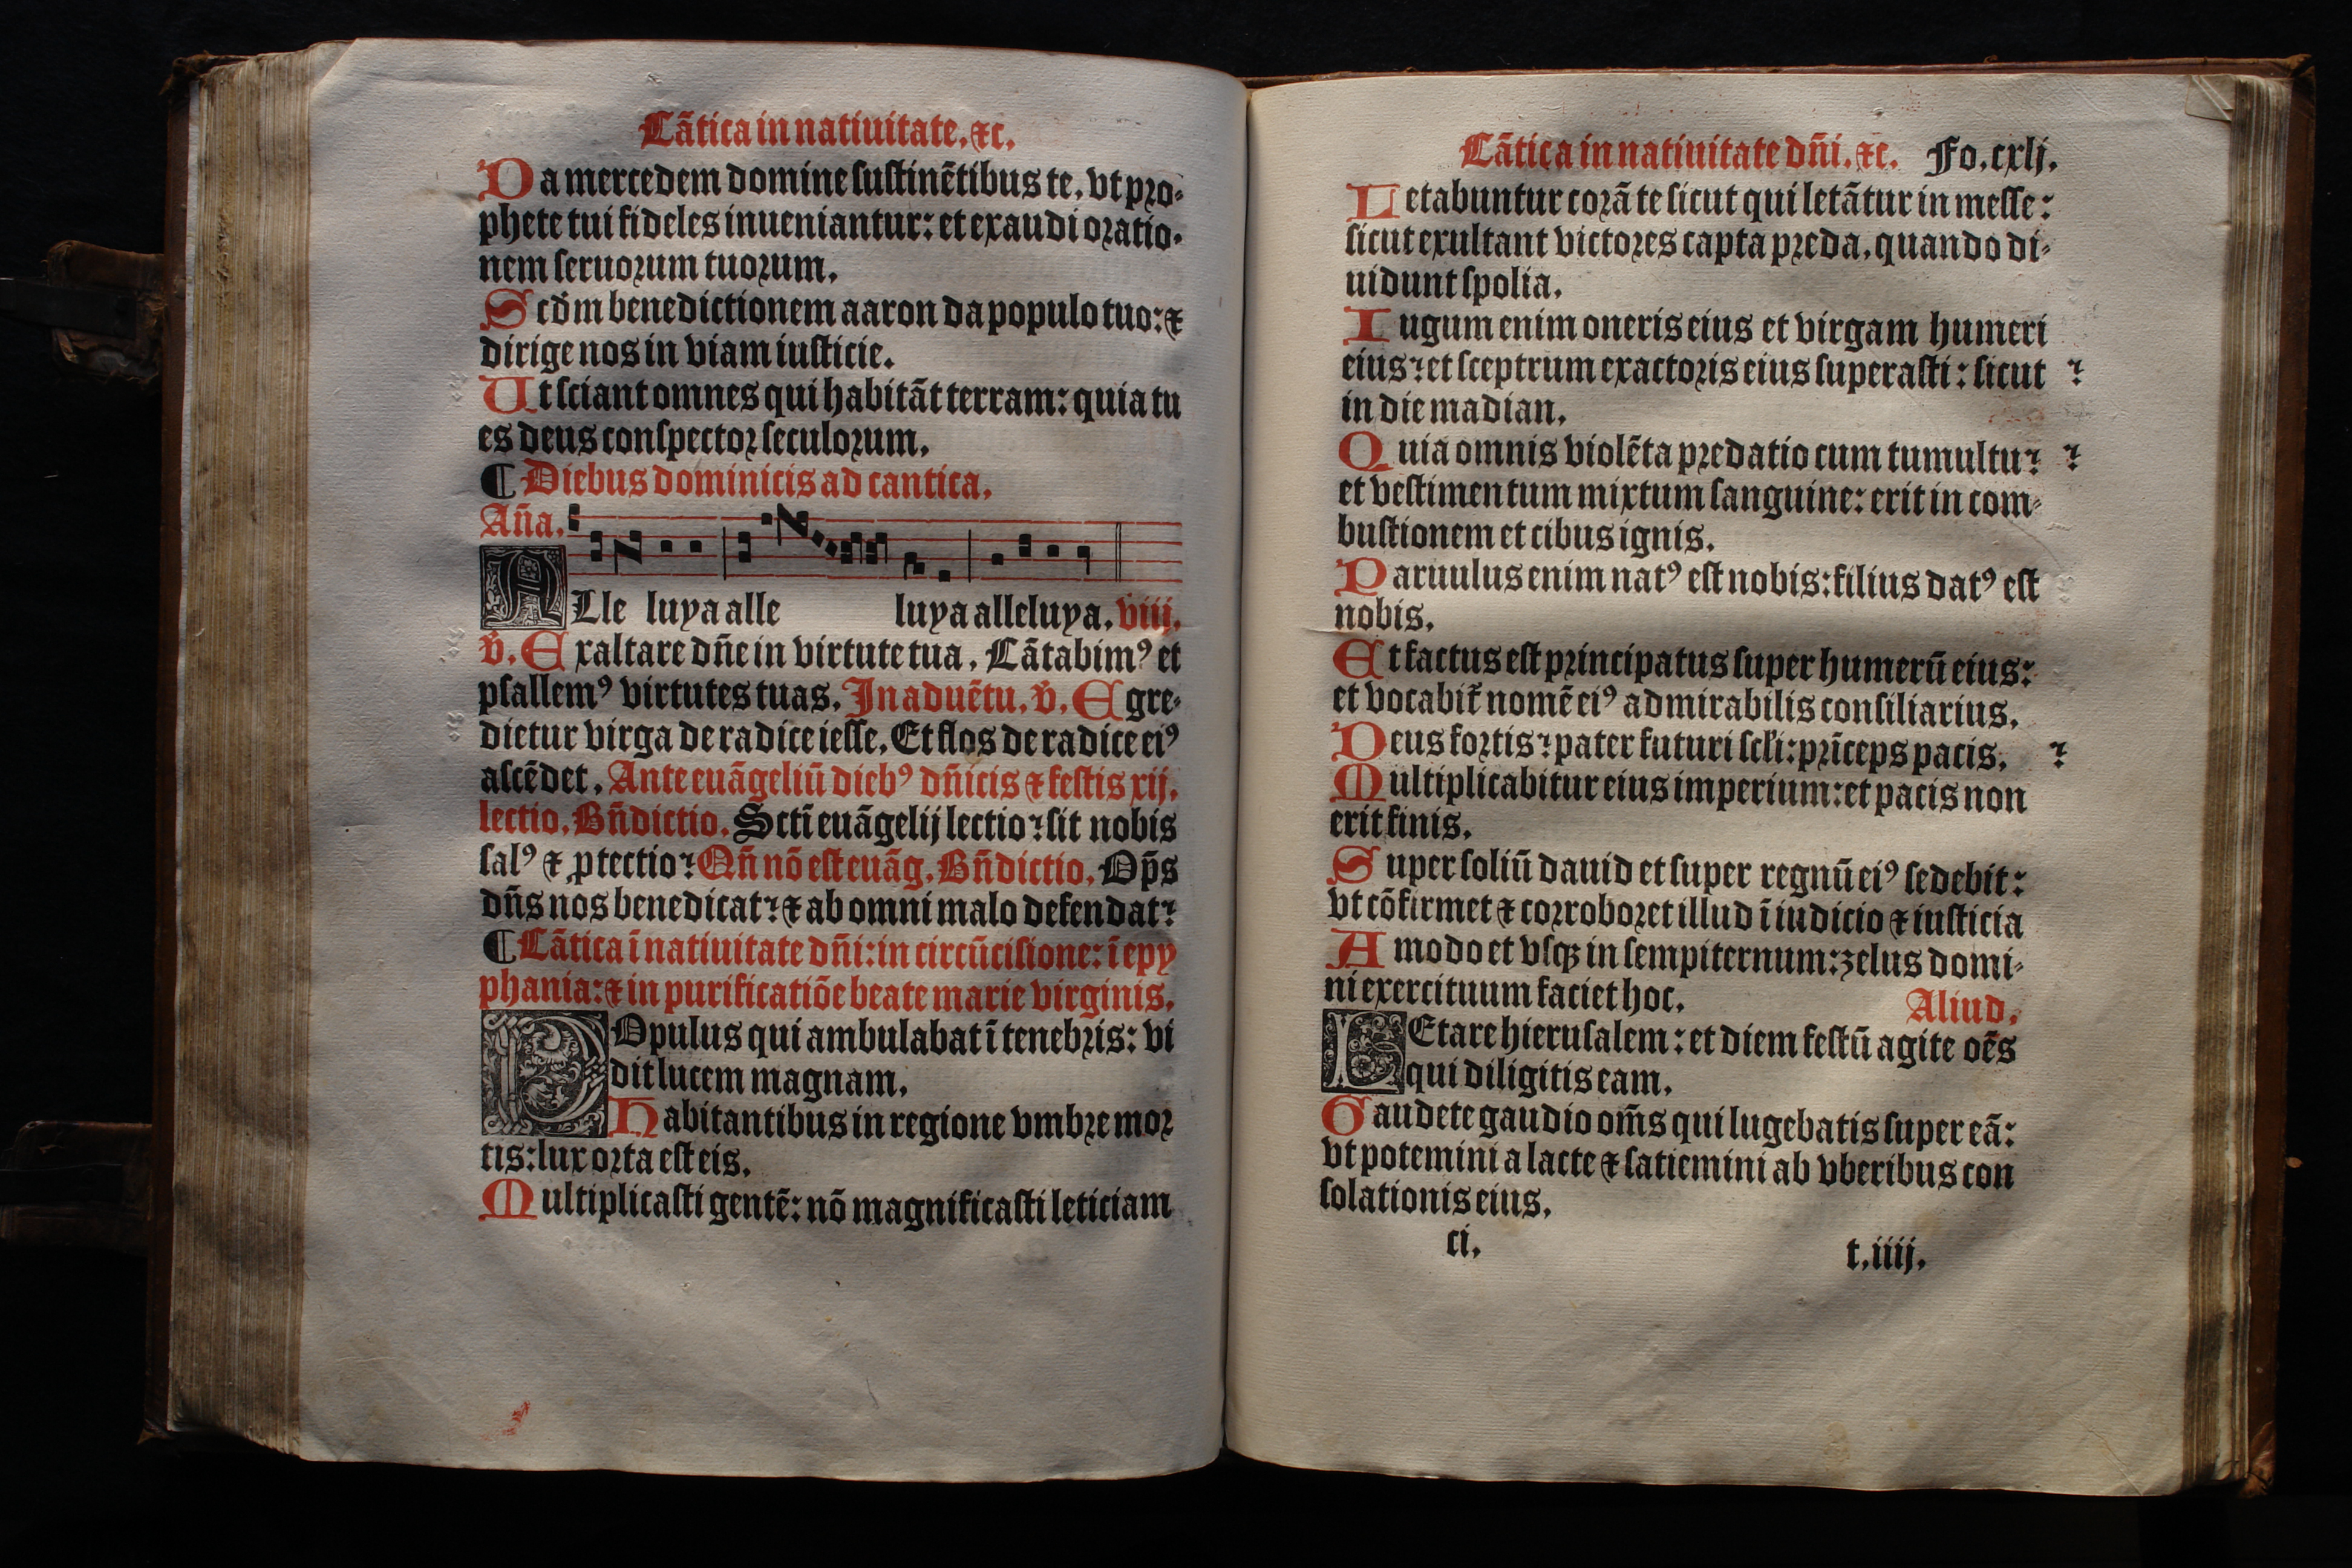 Cãtica in natiuitate. ⁊c.
Da mercedem domine sustinẽtibus te, vt pro-
phete tui fideles inueniantur: et exaudi oratio-
nem seruorum tuorum.
Scd̃m benedictionem aaron da populo tuo: ⁊
dirige nos in viam iusticie.
Ut sciant omnes qui habitãt terram: quia tu
es deus conspector seculorum.
¶ Diebus dominicis ad cantica.
Añа.
ALle luya alle luya alleluya. viij.
ṽ. Exaltare dñe in virtute tua. Cãtabimꝰ et
psallemꝰ virtutes tuas. In aduẽtu. ṽ. Egre-
dietur virga de radice iesse. Et flos de radice eiꝰ
ascẽdet. Ante euãgeliũ diebꝰ dñicis ⁊ festis xij.
lectio. Bñdictio. Scti euãgelij lectio: sit nobis
salꝰ ⁊ ꝓtectio: Qñ nõ est euãg. Bñdictio. Op̃s
dñs nos benedicat: ⁊ ab omni malo defendat:
¶ Cãtica ĩ natiuitate dñi: in circũcisione: ĩ epy
phania: ⁊ in purificatiõe beate marie virginis.
POpulus qui ambulabat ĩ tenebris: vi
dit lucem magnam.
Habitantibus in regione vmbre mor
tis: lux orta est eis.
Multiplicasti gentẽ: nõ magnificasti leticiam
Cãtica in natiuitate dñi. ⁊c. Fo. cxlj.
Letabuntur corã te sicut qui letãtur in messe:
sicut exultant victores capta preda, quando di-
uidunt spolia.
Iugum enim oneris eius et virgam humeri
eius: et sceptrum exactoris eius superasti: sicut
in die madian.
Quia omnis violẽta predatio cum tumultu:
et vestimentum mixtum sanguine: erit in com-
bustionem et cibus ignis.
Paruulus enim natꝰ est nobis: filius datꝰ est
nobis.
Et factus est principatus super humerũ eius:
et vocabit̃ nomẽ eiꝰ admirabilis consiliarius.
Deus fortis: pater futuri scłi: prĩceps pacis.
Multiplicabitur eius imperium: et pacis non
erit finis.
Super soliũ dauid et super regnũ eiꝰ sedebit:
vt cõfirmet ⁊ corroboret illud ĩ iudicio ⁊ iusticia
Amodo et vsqꝫ in sempiternum: zelus domi-
ni exercituum faciet hoc. Aliud.
LEtare hierusalem: et diem festũ agite oẽs
qui diligitis eam.
Gaudete gaudio om̃s qui lugebatis super eã:
vt potemini a lacte ⁊ satiemini ab vberibus con
solationis eius.
ci. t.iiij.